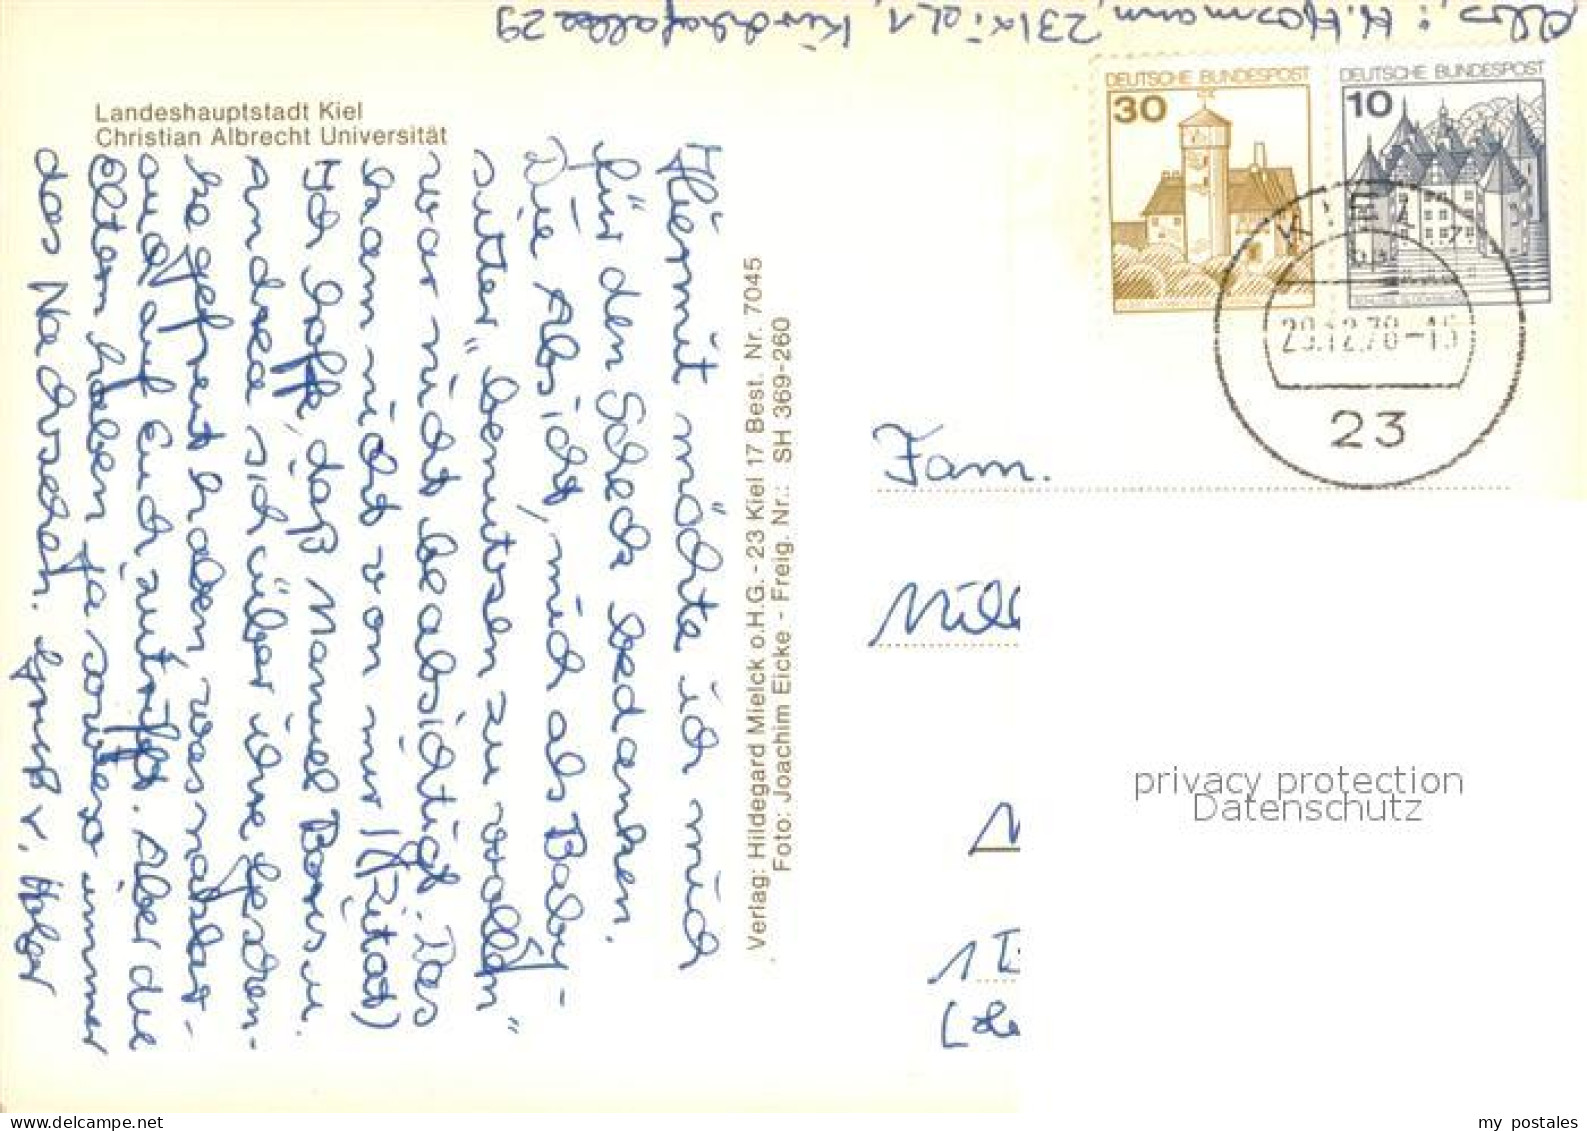 Abs.: H. Hosmann, 23 Kiel 1, Kirchhofallee 29
Landeshauptstadt Kiel
Christian Albrecht Universität
DEUTSCHE BUNDESPOST
30
DEUTSCHE BUNDESPOST
10
KIEL
29.12.78-15
23
Hiermit möchte ich mich
für den Scheck bedanken.
Die Absicht, mich als Baby-
sitter "benutzen zu wollen"
war nicht beabsichtigt. Das
kam nicht von mir! (Zitat)
Ich hoffe, daß Manuel Boris u.
Andrea sich über ihre Geschen-
ke gefreut haben, was natür-
auch auf Euch zutrifft. Aber die
Eltern haben ja sowieso immer
das Nachsehen. Gruß v.
Verlag: Hildegard Mielck o.H.G. - 23 Kiel 17 Best. Nr. 7045
Foto: Joachim Eicke - Freig. Nr.: SH 369-260
Fam.
privacy protection
Datenschutz
my postales